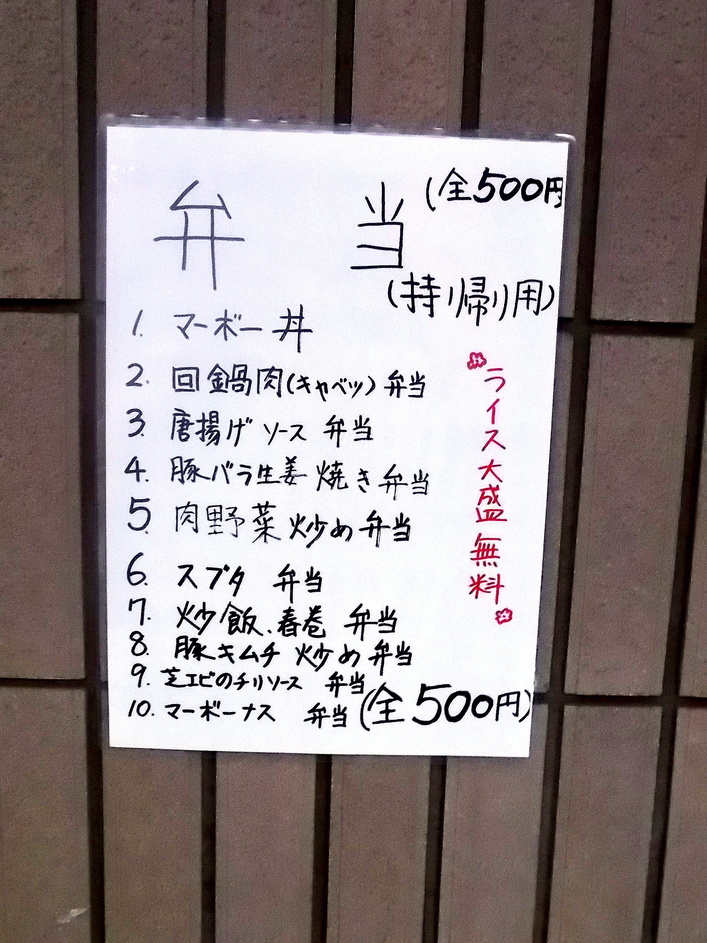 弁当
(全500円
(持り帰り用)
1. マーボー丼
2. 回鍋肉(キャベツ) 弁当
3. 唐揚げ ソース 弁当
4. 豚バラ生姜 焼き弁当
5. 肉野菜 炒め弁当
6. スブタ 弁当
7. 炒飯、春巻 弁当
8. 豚キムチ 炒め弁当
9. 芝エビのチリソース 弁当
10. マーボーナス 弁当
(全500円)
ライス大盛無料